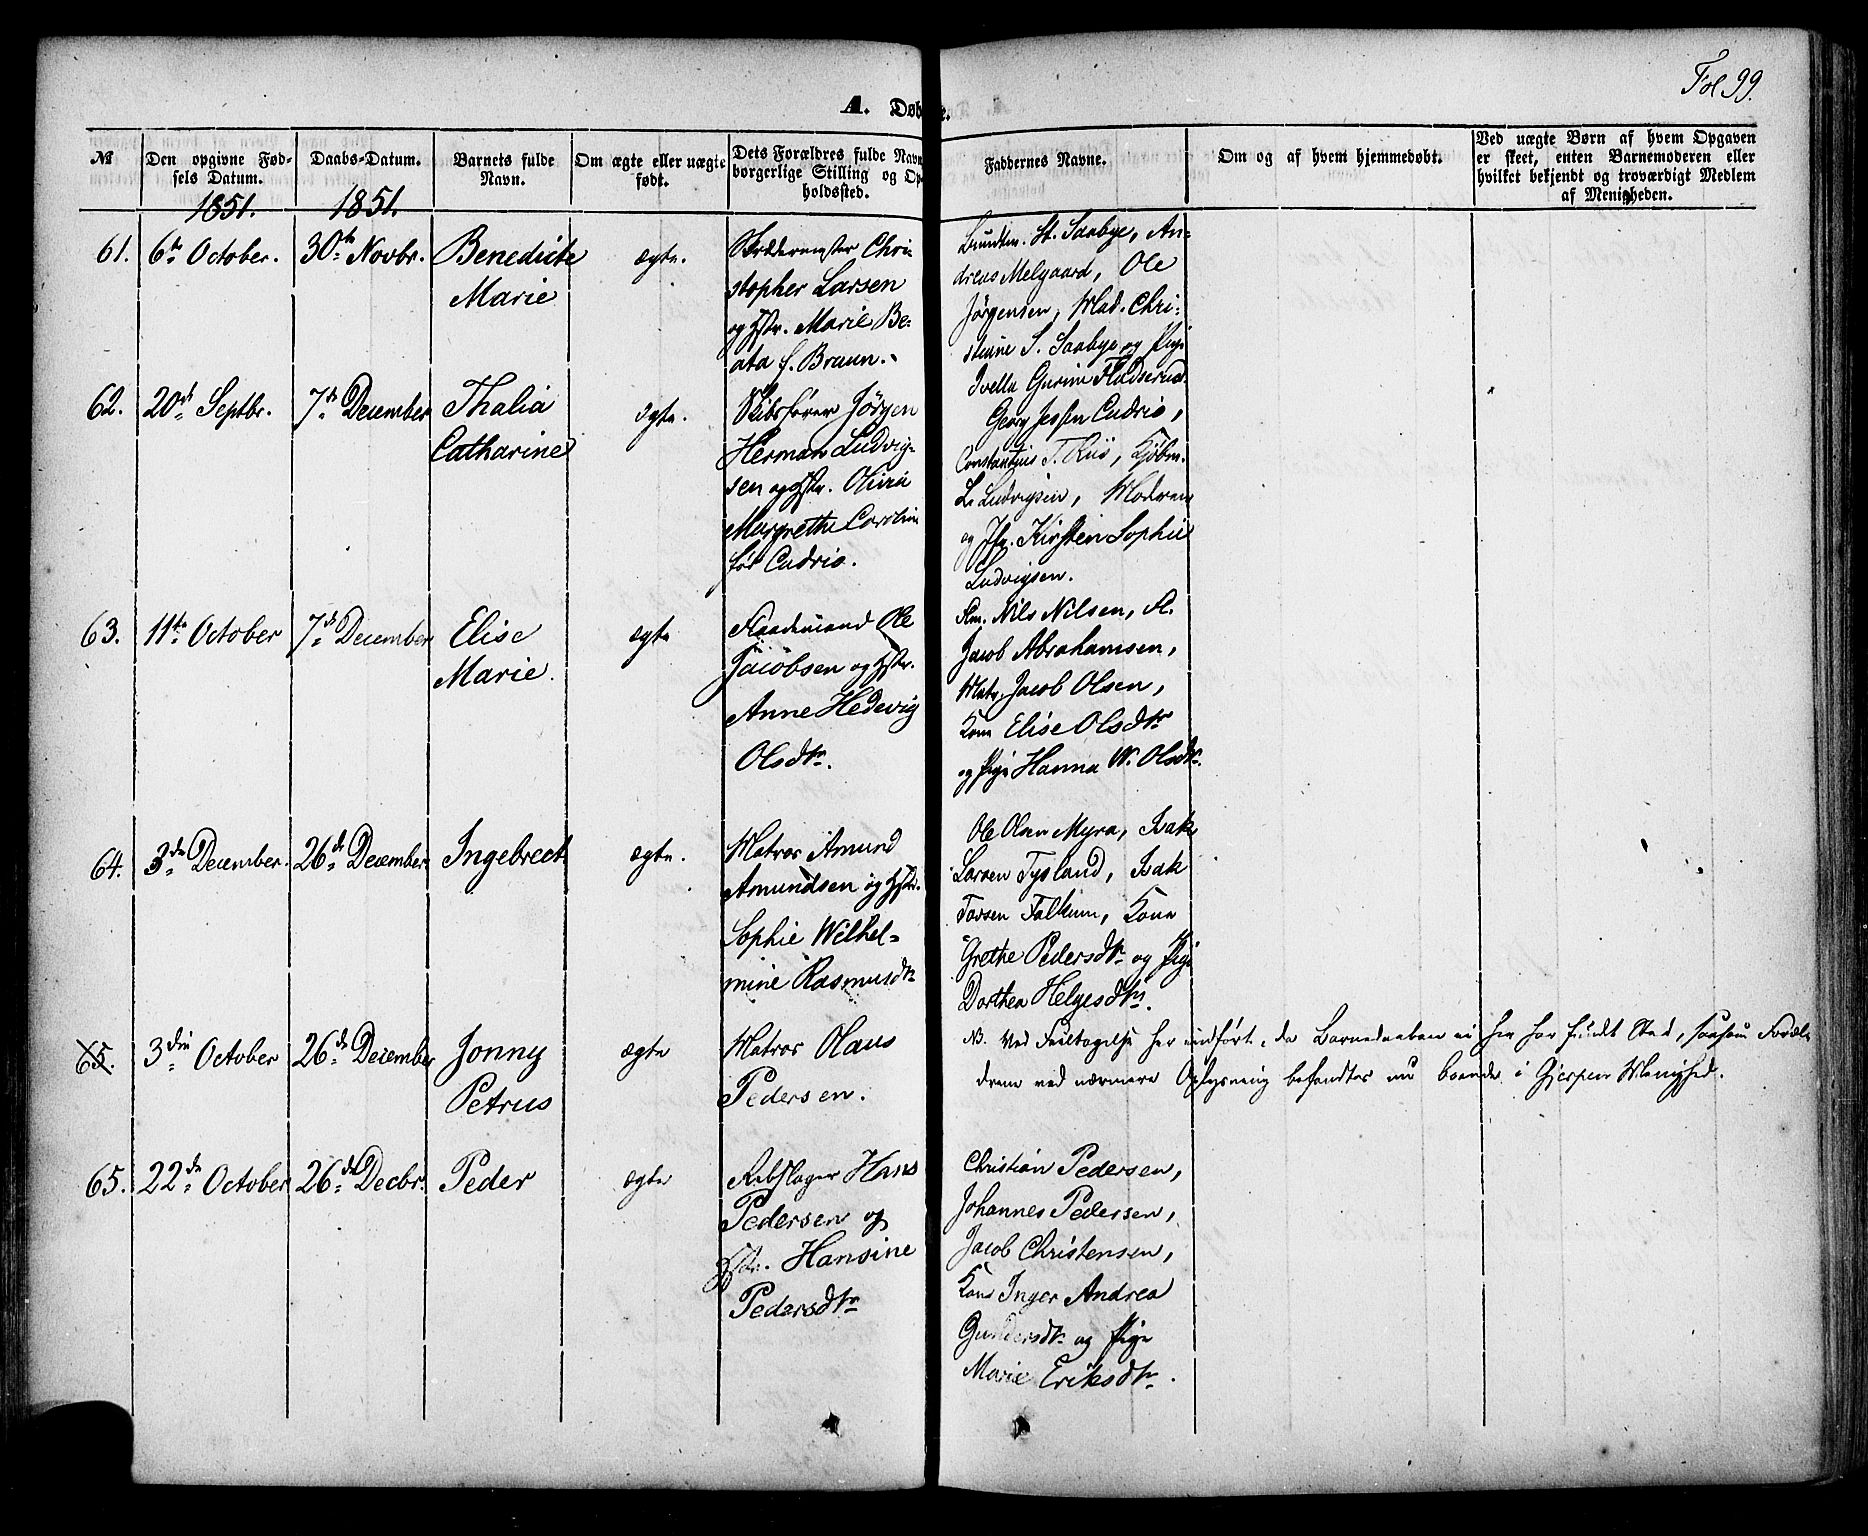 Fol 99.
A. Døbte.
№
Den opgivne Fødsels Datum.
Daabs-Datum.
Barnets fulde Navn.
Om ægte eller uægte født.
Dets Forældres fulde Navn, borgerlige Stilling og Opholdssted.
Faddernes Navne.
Om og af hvem hjemmedøbt.
Ved uægte Børn af hvem Opgaven er skeet, enten Barnemoderen eller hvilket bekjendt og troværdigt Medlem af Menigheden.
1851.
1851.
61.
6te October.
30te Novbr.
Benedicte
Marie
ægte.
Skrædermester Chri-
stopher Larsen
og Hstr. Marie Be-
ata f. Braun.
Bundtm. H. Saabye, An-
dreas Melgaard, Ole
Jørgensen, Mad. Chri-
stine S. Saabye og Pige
Gurine Fladserud.
62.
20de Septbr.
7de December
Thalia
Catharine
ægte.
Skibsfører Jörgen
Herman Ludvig-
sen og Hstr. Olivia
Margrethe Caroline
för Cudrio.
Georg Jessen Cudrio,
T. Riis, Kjöbm.
L. Ludvigsen, Moderen
og Jfr. Kirstein Sophie
Ludvigsen.
63.
11te October
7de December
Elise
Marie.
ægte
Flaademand Ole
Jacobsen og Hstr.
Anne Hedevig
Olsdtr.
Nils Nilsen, A.
Jacob Abrahamsen,
Matr. Jacob Olsen,
Kone Elise Olsdtr
og Pige Hanna W. Olsdtr.
64.
3die December.
26de December.
Ingebrect
ægte.
Matros Amund
Amundsen og Hstr.
Sophie Wilhel-
mine Rasmusdtr
Ole Olsen Myra, Isak
Larsen Tysland, Isak
Torsen Falkum, Kone
Grethe Pedersdtr og Pige
Dorthea Helgesdtr.
65.
3die October
26de December
Jonny
Petrus
ægte
Matros Olaus
Pedersen.
NB. Ved Feiltagelse her indført, da Barnedaaben ei her har fundt Sted, saasom Foræl-
drene ved nærmere Oplysning befandtes nu boende i Gjerpen Menighed.
65.
22de October
26de Decbr.
Peder
ægte
Rebslager Hans
Pedersen og
Hstr. Hansine
Pedersdtr
Christian Pedersen,
Johannes Pedersen,
Jacob Christensen,
Kone Inger Andrea
Gundersdtr og Pige
Marie Eriksdtr.